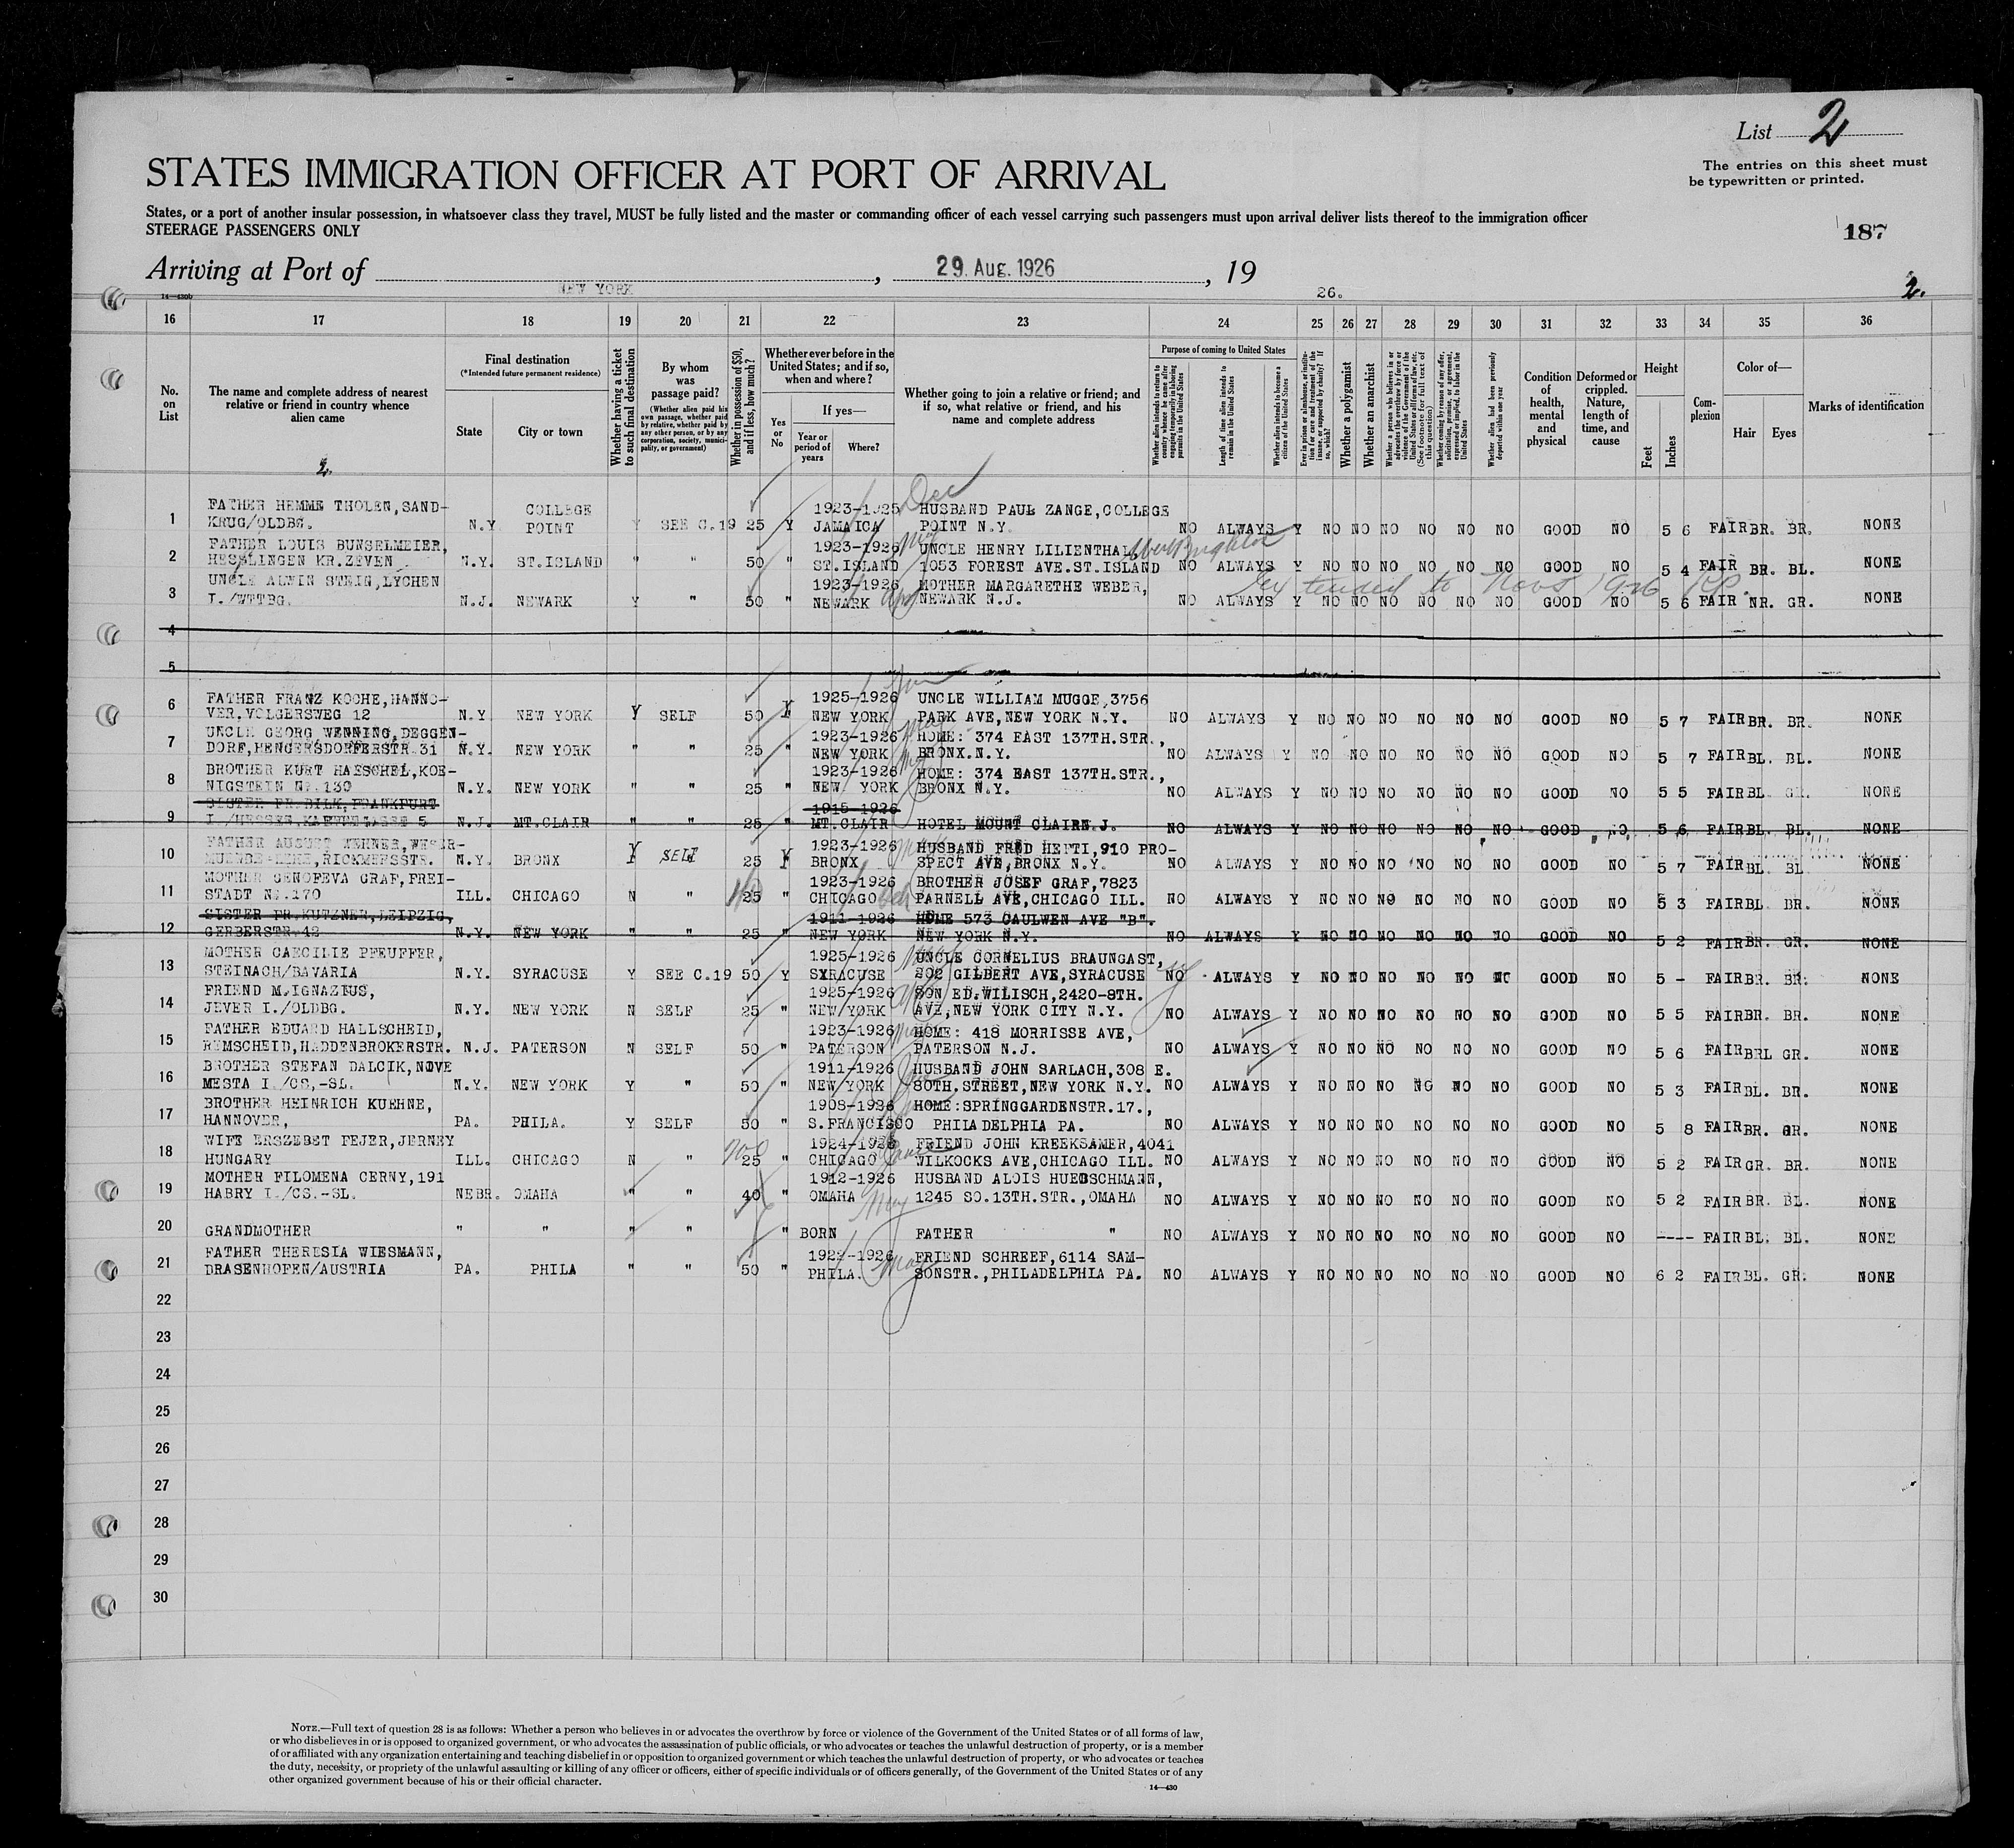 List 2
The entries on this sheet must
be typewritten or printed.
STATES IMMIGRATION OFFICER AT PORT OF ARRIVAL
States, or a port of another insular possession, in whatsoever class they travel, MUST be fully listed and the master or commanding officer of each vessel carrying such passengers must upon arrival deliver lists thereof to the immigration officer
STEERAGE PASSENGERS ONLY
187
Arriving at Port of NEW YORK, 29. Aug. 1926, 19 26.
2.
14—430b
16 17 18 19 20 21 22 23 24 25 26 27 28 29 30 31 32 33 34 35 36
No. on List
The name and complete address of nearest relative or friend in country whence alien came
2.
Final destination
(*Intended future permanent residence)
State
City or town
Whether having a ticket to such final destination
By whom was passage paid?
(Whether alien paid his own passage, whether paid by relative, whether paid by any other person, or by any corporation, society, municipality, or government)
Whether in possession of $50, and if less, how much?
Whether ever before in the United States; and if so, when and where?
Yes or No
If yes—
Year or period of years
Where?
Whether going to join a relative or friend; and if so, what relative or friend, and his name and complete address
Purpose of coming to United States
Whether alien intends to return to country whence he came after engaging temporarily in laboring pursuits in the United States
Length of time alien intends to remain in the United States
Whether alien intends to become a citizen of the United States
Ever in prison or almshouse, or institution for care and treatment of the insane, or supported by charity? If so, which?
Whether a polygamist
Whether an anarchist
Whether a person who believes in or advocates the overthrow by force or violence of the Government of the United States or all forms of law, etc. (See footnote for full text of this question)
Whether coming by reason of any offer, solicitation, promise, or agreement, expressed or implied, to labor in the United States
Whether alien had been previously deported within one year
Condition of health, mental and physical
Deformed or crippled. Nature, length of time, and cause
Height
Feet
Inches
Complexion
Color of—
Hair
Eyes
Marks of identification
Dec
FATHER HEMME THOLEN,SAND- COLLEGE 1923-1925 HUSBAND PAUL ZANGE,COLLEGE
1 KRUG/OLDBG. N.Y. POINT Y SEE C.19 25 Y JAMAICA POINT N.Y. NO ALWAYS Y NO NO NO NO NO NO GOOD NO 5 6 FAIR BR. BR. NONE
FATHER LOUIS BUNSELMEIER, 1923-1926 UNCLE HENRY LILIENTHAL
2 HESSLINGEN KR.ZEVEN N.Y. ST.ISLAND " " 50 " ST.ISLAND 1053 FOREST AVE.ST.ISLAND NO ALWAYS Y NO NO NO NO NO NO GOOD NO 5 4 FAIR BR. BL. NONE
UNCLE ALWIN STEIN,LYCHEN 1923-1926 MOTHER MARGARETHE WEBER, Extended to Nov 5 1926
3 I./WTTBG. N.J. NEWARK Y " 50 " NEWARK NEWARK N.J. NO ALWAYS Y NO NO NO NO NO NO GOOD NO 5 6 FAIR NR. GR. NONE
4
5
FATHER FRANZ KOCHE,HANNO- 1925-1926 UNCLE WILLIAM MUGGE,3756
6 VER,VOLGERSWEG 12 N.Y. NEW YORK Y SELF 50 Y NEW YORK PARK AVE,NEW YORK N.Y. NO ALWAYS Y NO NO NO NO NO NO GOOD NO 5 7 FAIR BR. BR. NONE
UNCLE GEORG WENNING,DEGGEN- 1923-1926 HOME: 374 EAST 137TH.STR.,
7 DORF,HENGERSDORFERSTR.31 N.Y. NEW YORK " " 25 " NEW YORK BRONX.N.Y. NO ALWAYS Y NO NO NO NO NO NO GOOD NO 5 7 FAIR BL. BL. NONE
BROTHER KURT HAESCHEL,KOE- 1923-1926 HOME: 374 EAST 137TH.STR.,
8 NIGSTEIN No.130 N.Y. NEW YORK " " 25 " NEW YORK BRONX N.Y. NO ALWAYS Y NO NO NO NO NO NO GOOD NO 5 5 FAIR BL GR. NONE
SISTER FR.BILK,FRANKFURT 1915-1926
9 I./HESSEN, 5 N.J. MT.CLAIR " " 25 " MT.CLAIR HOTEL MOUNT CLAIR N.J. NO ALWAYS Y NO NO NO NO NO NO GOOD NO 5 6 FAIR BL. BL. NONE
FATHER AUGUST WEHNER,WESER- 1923-1926 HUSBAND FRED HEFTI,910 PRO-
10 RICKMERSSTR. N.Y. BRONX Y SELF 25 Y BRONX SPECT AVE,BRONX N.Y. NO ALWAYS Y NO NO NO NO NO NO GOOD NO 5 7 FAIR BL. BL NONE
MOTHER GENOFEVA GRAF,FREI- 1923-1926 BROTHER JOSEF GRAF,7823
11 STADT No.170 ILL. CHICAGO N " 25 " CHICAGO PARNELL AVE,CHICAGO ILL. NO ALWAYS Y NO NO NO NO NO NO GOOD NO 5 3 FAIR BL. BR. NONE
SISTER FR.KUTZNER,LEIPZIG, 1911-1926 HOME 573 CAULWEN AVE "B".
12 GERBERSTR.42 N.Y. NEW YORK " " 25 " NEW YORK NEW YORK N.Y. NO ALWAYS Y NO NO NO NO NO NO GOOD NO 5 2 FAIR BR. GR. NONE
MOTHER CAECILIE PFEUFFER, 1925-1926 UNCLE CORNELIUS BRAUNGAST,
13 STEINACH/BAVARIA N.Y. SYRACUSE Y SEE C.19 50 Y SYRACUSE 202 GILBERT AVE,SYRACUSE NO ALWAYS Y NO NO NO NO NO NO GOOD NO 5 - FAIR BR. BR. NONE
FRIEND M.IGNAZIUS, 1925-1926 SON ED.WILISCH,2420-8TH.
14 JEVER I./OLDBG. N.Y. NEW YORK N SELF 25 " NEW YORK AVE,NEW YORK CITY N.Y. NO ALWAYS Y NO NO NO NO NO NO GOOD NO 5 5 FAIR BR. BR. NONE
FATHER EDUARD HALLSCHEID, 1923-1926 HOME: 418 MORRISSE AVE,
15 REMSCHEID,HADDENBROKERSTR. N.J. PATERSON N SELF 50 " PATERSON PATERSON N.J. NO ALWAYS Y NO NO NO NO NO NO GOOD NO 5 6 FAIR BRL GR. NONE
BROTHER STEFAN DALCIK,NOVE 1911-1926 HUSBAND JOHN SARLACH,308 E.
16 MESTA I./CS,-SL. N.Y. NEW YORK Y " 50 " NEW YORK 80TH.STREET,NEW YORK N.Y. NO ALWAYS Y NO NO NO NO NO NO GOOD NO 5 3 FAIR BL. BR. NONE
BROTHER HEINRICH KUEHNE, 1908-1926 HOME:SPRINGGARDENSTR.17.,
17 HANNOVER, PA. PHILA. Y SELF 50 " S.FRANCISCO PHILADELPHIA PA. NO ALWAYS Y NO NO NO NO NO NO GOOD NO 5 8 FAIR BR. GR. NONE
WIFE ERSZEBST FEJER,JERNEY 1924-1926 FRIEND JOHN KREEKSAMER,4041
18 HUNGARY ILL. CHICAGO N " 25 " CHICAGO WILKOCKS AVE,CHICAGO ILL. NO ALWAYS Y NO NO NO NO NO NO GOOD NO 5 2 FAIR GR. BR. NONE
MOTHER FILOMENA CERNY,191 1912-1926 HUSBAND ALOIS HUEBSCHMANN,
19 HABRY I./CS.-SL. NEBR. OMAHA " " 40 " OMAHA May 1245 SO.13TH.STR.,OMAHA NO ALWAYS Y NO NO NO NO NO NO GOOD NO 5 2 FAIR BR. BL. NONE
20 GRANDMOTHER " " " " " BORN FATHER " NO ALWAYS Y NO NO NO NO NO NO GOOD NO ---- FAIR BL. BL. NONE
FATHER THERESIA WIESMANN, 1922-1926 FRIEND SCHREEF,6114 SAM-
21 DRASENHOFEN/AUSTRIA PA. PHILA " " 50 " PHILA. May SONSTR.,PHILADELPHIA PA. NO ALWAYS Y NO NO NO NO NO NO GOOD NO 6 2 FAIR BL. GR. NONE
22
23
24
25
26
27
28
29
30
NOTE.—Full text of question 28 is as follows: Whether a person who believes in or advocates the overthrow by force or violence of the Government of the United States or of all forms of law,
or who disbelieves in or is opposed to organized government, or who advocates the assassination of public officials, or who advocates or teaches the unlawful destruction of property, or is a member
of or affiliated with any organization entertaining and teaching disbelief in or opposition to organized government or which teaches the unlawful destruction of property, or who advocates or teaches
the duty, necessity, or propriety of the unlawful assaulting or killing of any officer or officers, either of specific individuals or of officers generally, of the Government of the United States or of any
other organized government because of his or their official character.
14—430